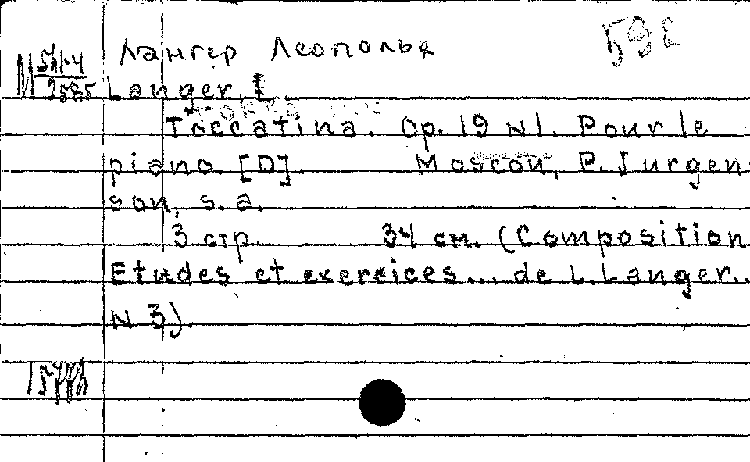 Лангер Леопольд
Langer, L
Toccatina. Op. 19 N1. Pour le
piano. [D]. Moscou, P. Jurgen
son, s. a.
3 стр. 34 см. (Composition
Etudes et exercices... de L. Langer..
N 3).